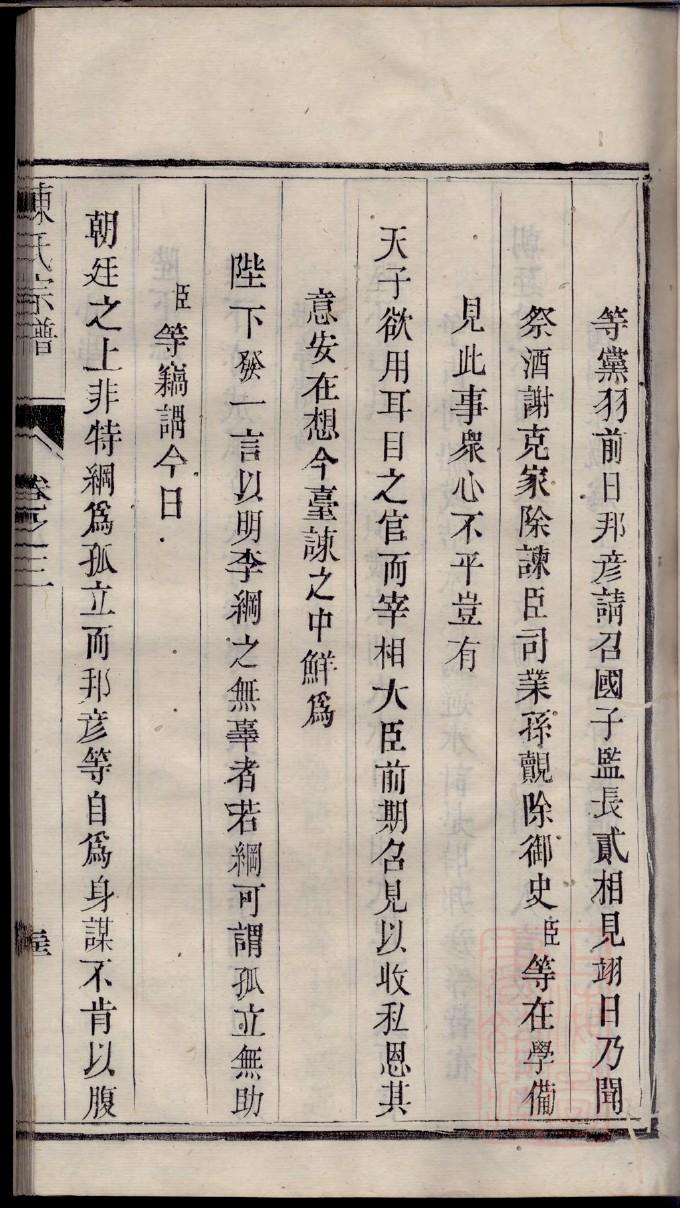 等黨羽前日邦彦請召國子監長貳相見翊日乃聞
祭酒謝克家除諫臣司業孫覿除御史臣等在學備
見此事衆心不平豈有
天子欲用耳目之官而宰相大臣前期召見以收私恩其
意安在想今臺諫之中鮮爲
陛下發一言以明李綱之無辜者若綱可謂孤立無助
臣等竊謂今日
朝廷之上非特綱爲孤立而邦彦等自爲身謀不肯以腹
陳氏宗譜
卷之三